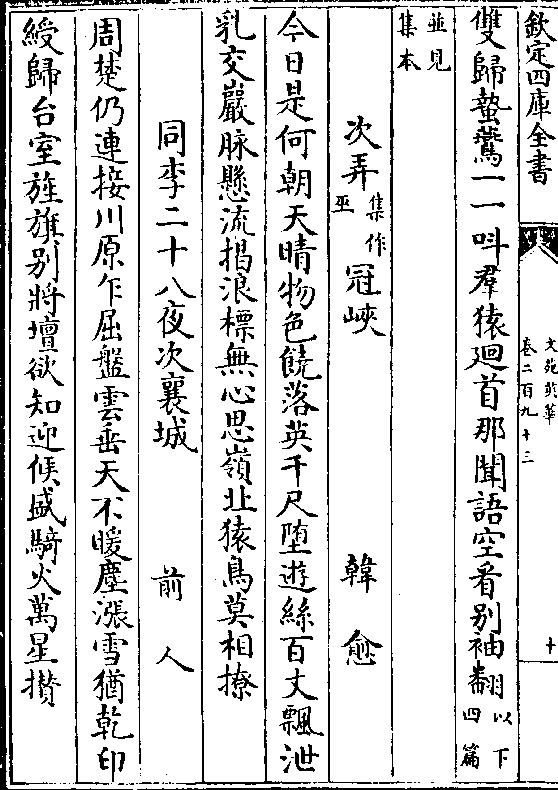 欽定四庫全書
文苑英華
卷二百九十三
十
雙歸蟄鷲一一叫羣猿廻首那聞語空看别袖翻以下四篇
並見集本
次弄集作巫冠峽 韓愈
今日是何朝天晴物色饒落英千尺堕遊絲百丈飄泄
乳交巖脉懸流揭浪標無心思嶺北猿鳥莫相撩
同李二十八夜次襄城 前人
周楚仍連接川原乍屈盤雲垂天不暖塵漲雪猶乾印
綬歸台室旌旗别將壇欲知迎候盛騎火萬星攅